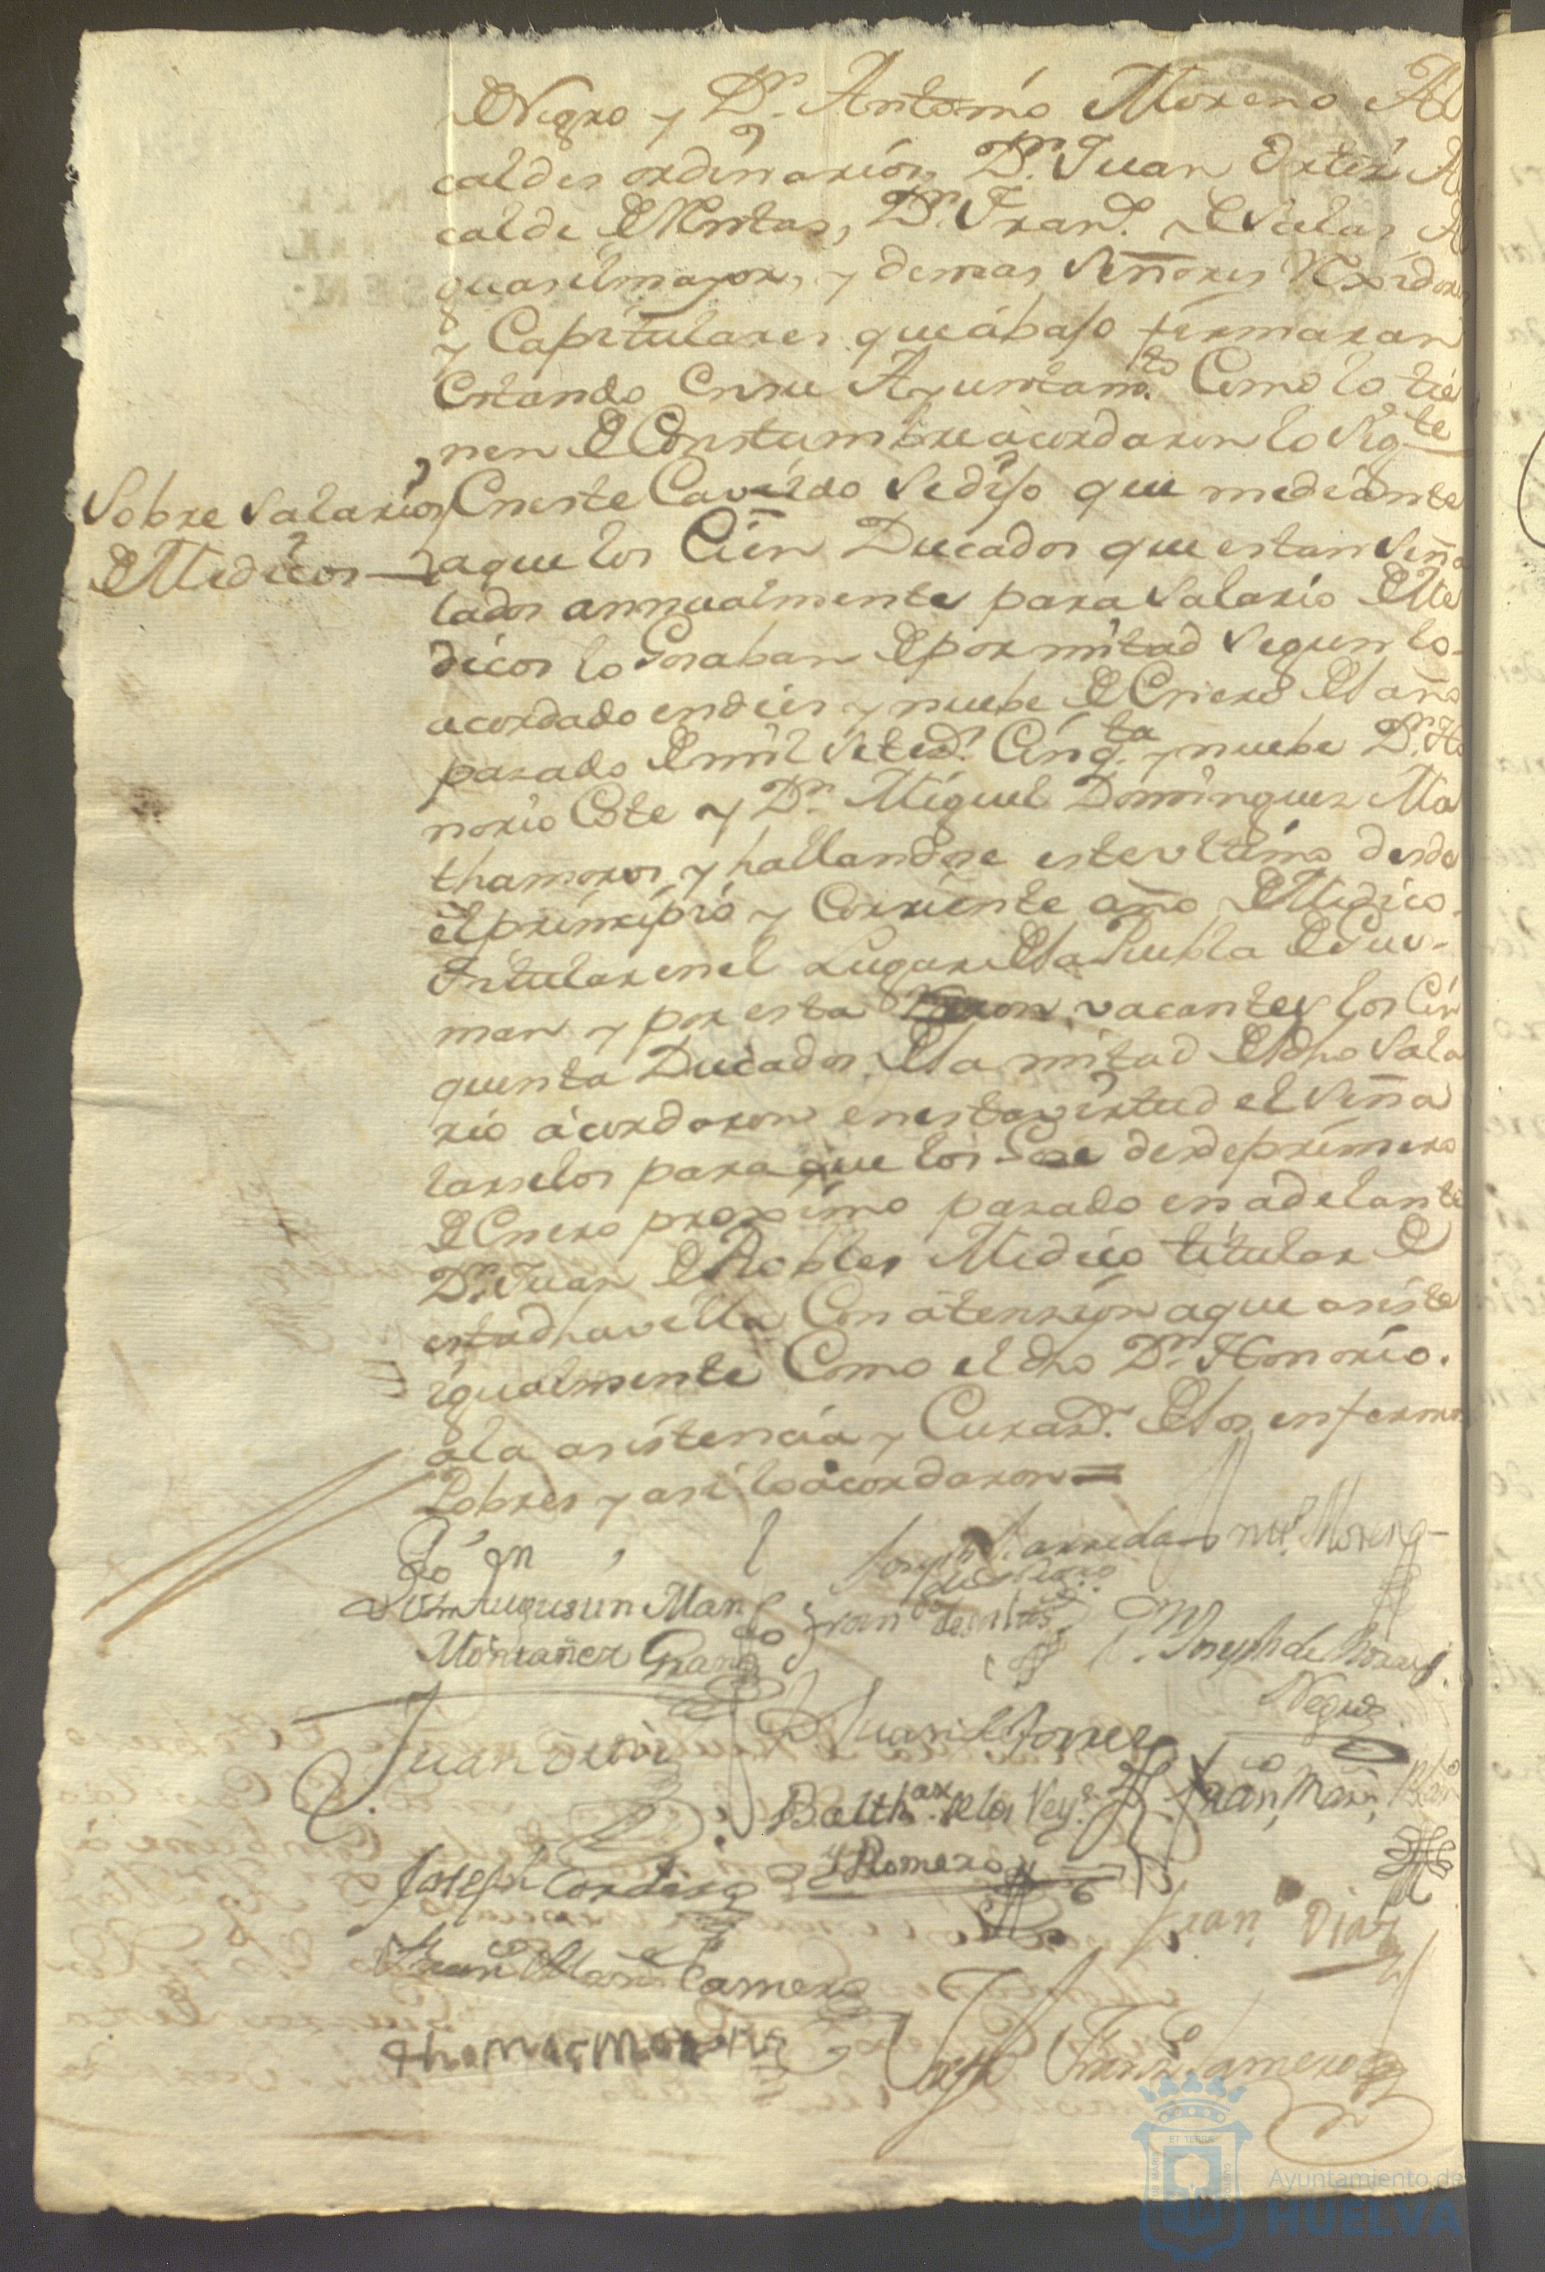 Negro y Dn. Antonio Moreno Al
caldes ordinarios, Dn. Juan Ortiz Al
calde de Rentas, Dn. Franco. de Salas A
guasilmayor, y demas Señores Rexidores
y Capitulares que abajo firmaran
Estando en su Ayuntamto. Como lo tie
nen de Constumbre acordaron lo Sigte
Sobre Salarios
de Medicos
En este Cavildo Se dijo que mediante
aque los Cien Ducados que estan Seña
lados annualmente para Salario de Me
dicos lo Gosaban de por mitad Segun lo
acordado en dies y nuebe de Enero del año
pasado de mil Seteds. Cinqta. y nuebe Dn. Ho
norio Cote y Dn. Miguel Dominguez Ma
thamoros y hallandose este vltimo desde
el principio y Corriente año de Medico
titular en el Lugar de la Puebla de Gus-
man y por esta Razon vacantes los Cin
quenta Ducados de la mitad del dho Sala
rio acordaron en esta virtud el Seña
larselos para que los Gose desde primero
de Enero proximo pasado en adelante
Dn. Juan de Robles Medico titular de
esta dha villa Con atension aque asiste
igualmente Como el dho Dn. Honorio
a la asistencia y Curaon. de los enfermos
Pobres y asi lo acordaron =
Joseph Barreda
Anto. Moreno
Dn Augustin Man
Franco. de Salas
Montañer
Dn. Joseph de
Negro
Juan
Juan de Torres
Balthar. de los Reys.
y Romero
Franco. Marn.
Joseph Cordero
Franco. Diaz
Franco. Marn. Camero
thomas Moreno
Joseph Franco. Camero
ET TERRA
Ayuntamiento de
HUELVA